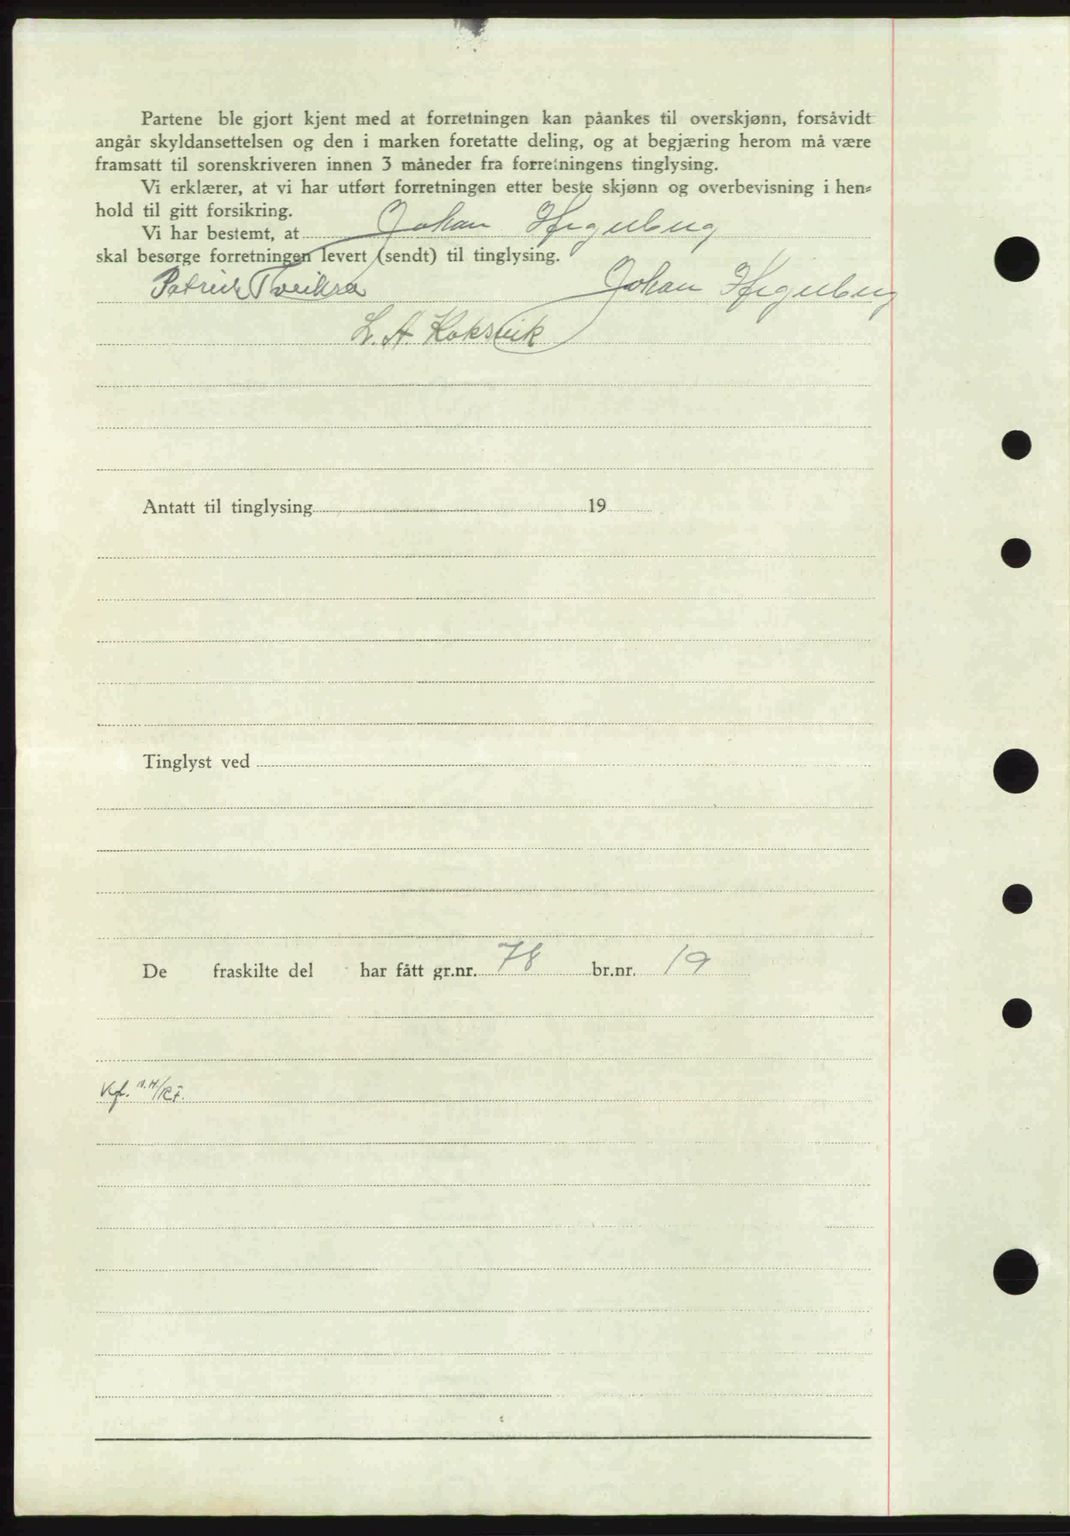 Partene ble gjort kjent med at forretningen kan påankes til overskjønn, forsåvidt
angår skyldansettelsen og den i marken foretatte deling, og at begjæring herom må være
framsatt til sorenskriveren innen 3 måneder fra forretningens tinglysing.
Vi erklærer, at vi har utført forretningen etter beste skjønn og overbevisning i hen-
hold til gitt forsikring.
Vi har bestemt, at Johan
skal besørge forretningen levert (sendt) til tinglysing.
Patrick Tveikra Johan
L. A. Koksvik
Antatt til tinglysing 19
Tinglyst ved
De fraskilte del har fått gr.nr. 78 br.nr. 19
Kf. N.H/RF.